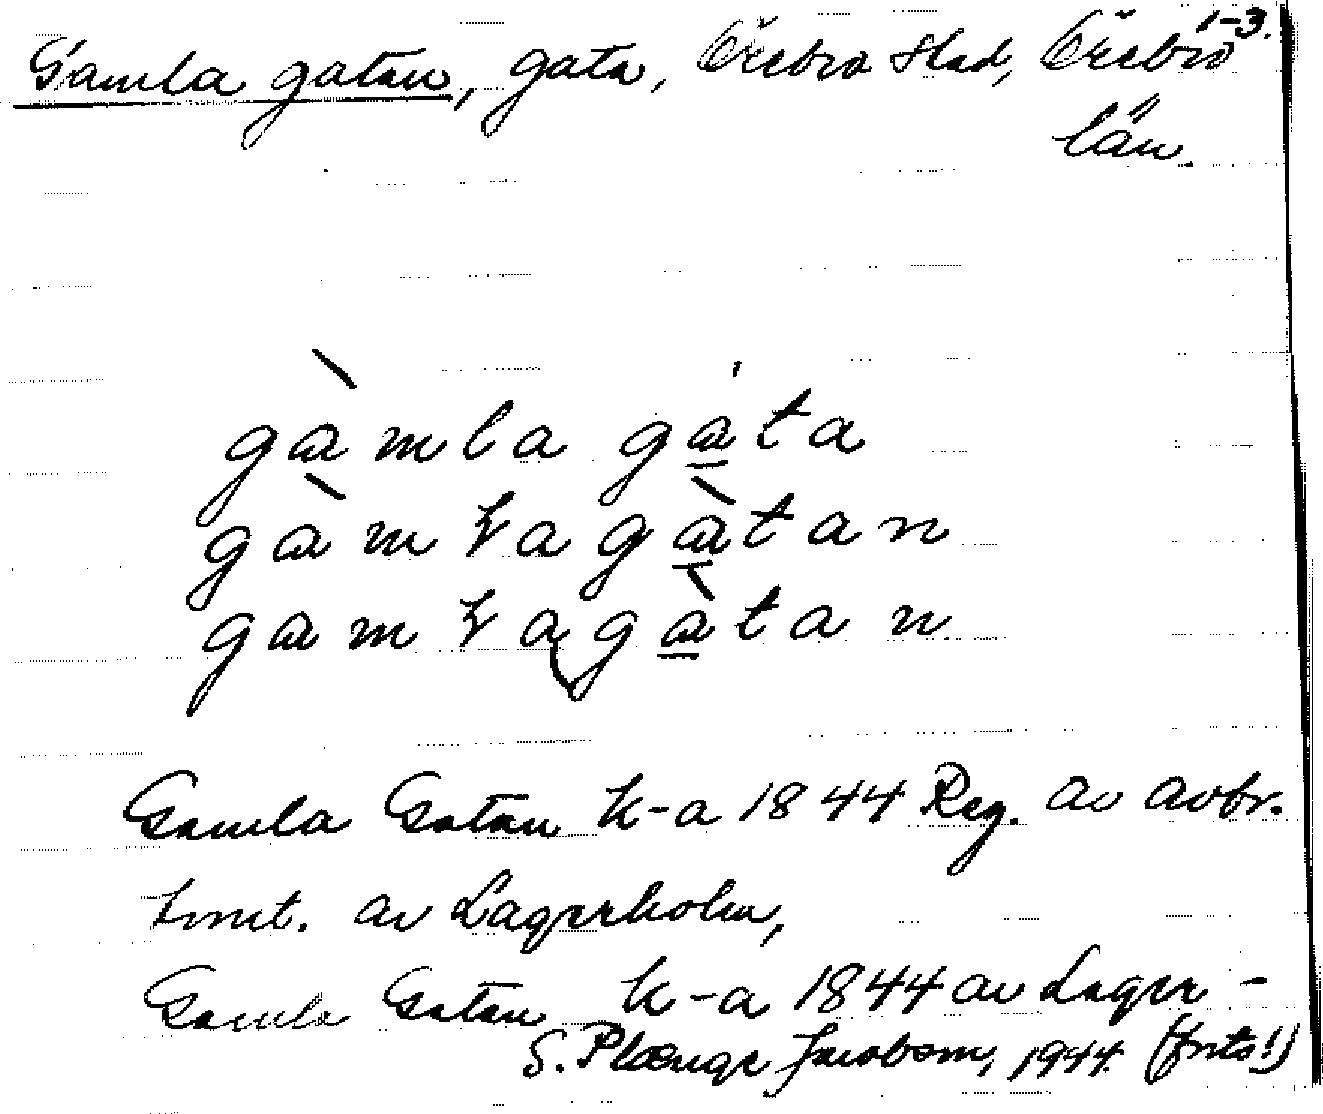 1-3.
Gamla gatan, gata, Örebro stad, Örebro
län.
gàmla gáta
gàmɽagàtan
gamɽagàtan
Gamla Gatan k-a 1844 Reg. av avbr.
tomt. av Lagerholm,
Gamla Gatan k-a 1844 av Lager-
S. Plænge Jacobson, 1944. (forts!)